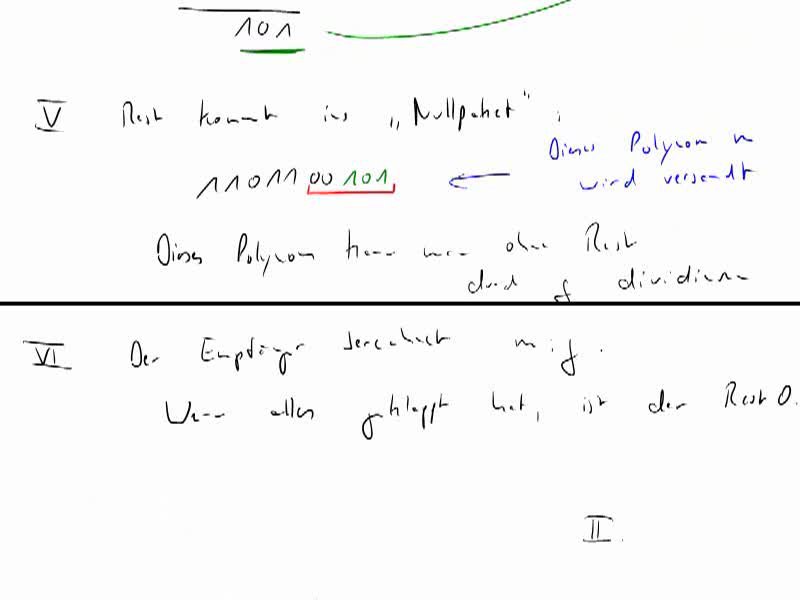 101
V Rest kommt ins „Nullpaket“:
Dieses Polynom m
wird versendt
11011 00 101
Dieses Polynom kann man ohne Rest
durch f dividieren
VI Der Empfänger berechnet m : f.
Wenn alles geklappt hat, ist der Rest 0.
II.